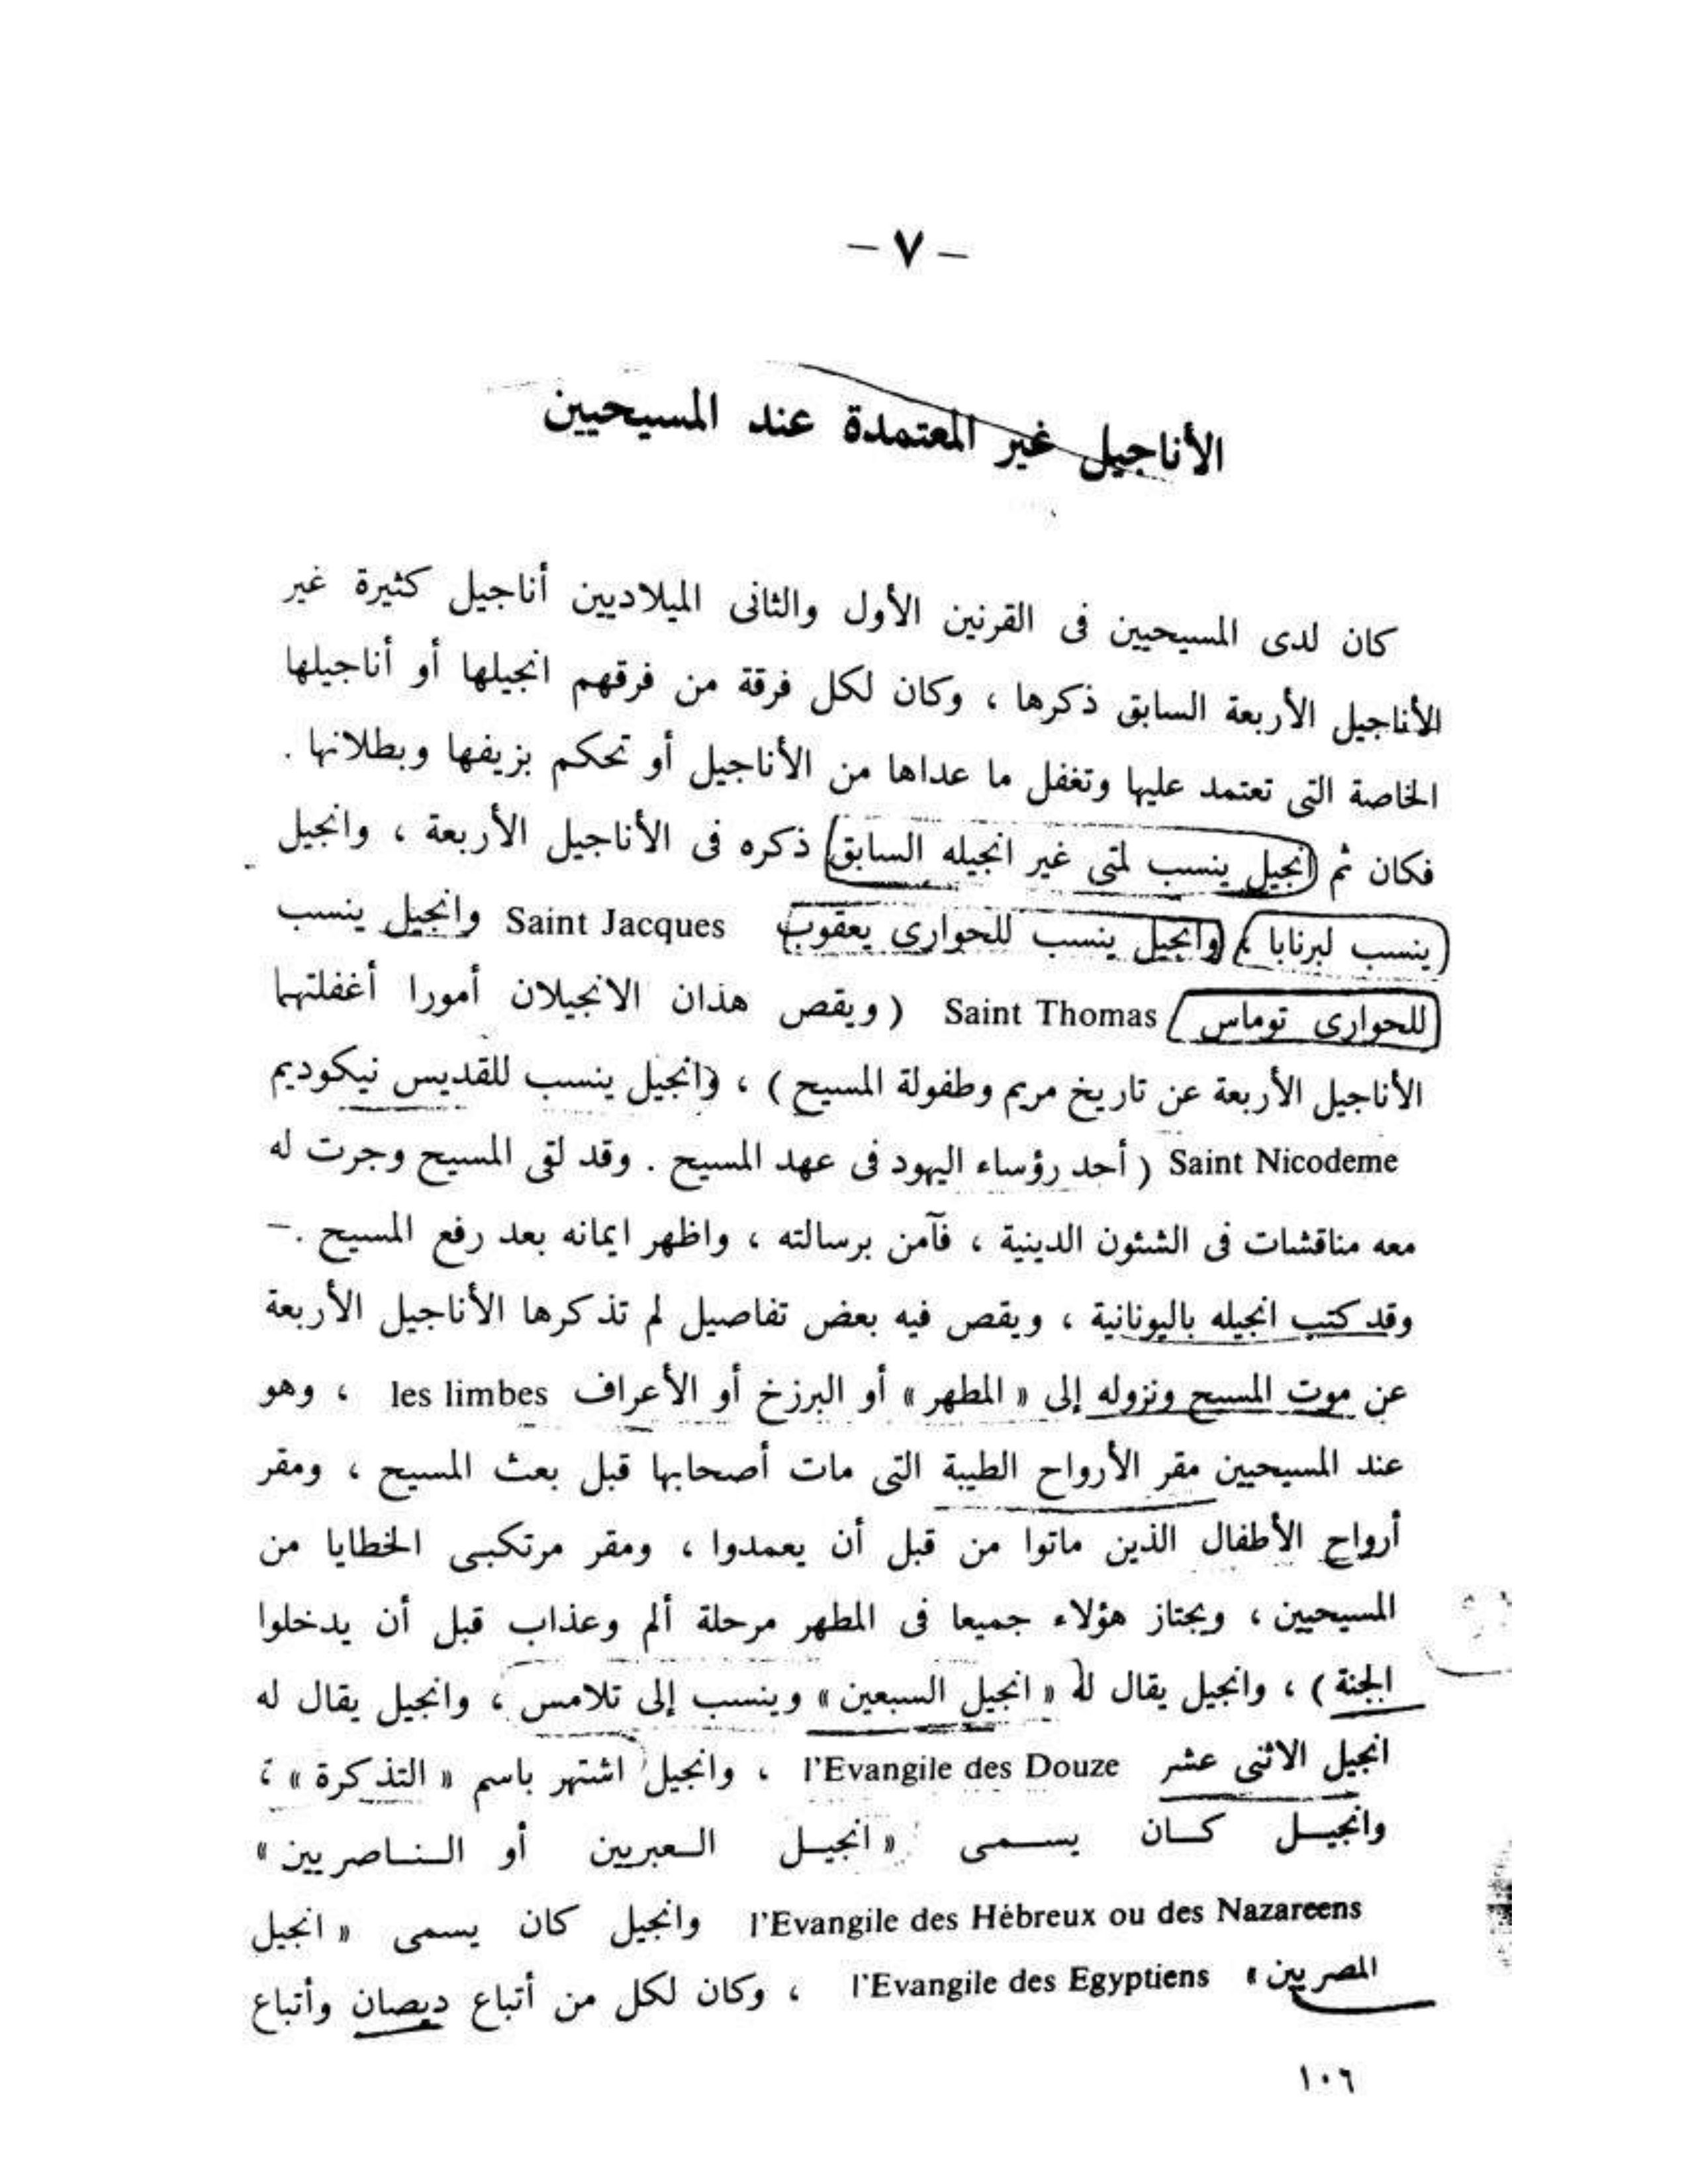 – ٧ –
الأناجيل غير المعتمدة عند المسيحيين
كان لدى المسيحيين فى القرنين الأول والثانى الميلاديين أناجيل كثيرة غير
الأناجيل الأربعة السابق ذكرها ، وكان لكل فرقة من فرقهم انجيلها أو أناجيلها
الخاصة التى تعتمد عليها وتغفل ما عداها من الأناجيل أو تحكم بزيفها وبطلانها .
فكان ثم انجيل ينسب لمتى غير انجيله السابق ذكره فى الأناجيل الأربعة ، وانجيل
ينسب لبرنابا ، وانجيل ينسب للحوارى يعقوب Saint Jacques وانجيل ينسب
للحوارى توماس Saint Thomas ( ويقص هذان الانجيلان أمورا أغفلتهما
الأناجيل الأربعة عن تاريخ مريم وطفولة المسيح ) ، وانجيل ينسب للقديس نيكوديم
Saint Nicodeme ( أحد رؤساء اليهود فى عهد المسيح . وقد لقى المسيح وجرت له
معه مناقشات فى الشئون الدينية ، فآمن برسالته ، واظهر ايمانه بعد رفع المسيح . –
وقد كتب انجيله باليونانية ، ويقص فيه بعض تفاصيل لم تذكرها الأناجيل الأربعة
عن موت المسيح ونزوله إلى « المطهر » أو البرزخ أو الأعراف les limbes ، وهو
عند المسيحيين مقر الأرواح الطيبة التى مات أصحابها قبل بعث المسيح ، ومقر
أرواح الأطفال الذين ماتوا من قبل أن يعمدوا ، ومقر مرتكبى الخطايا من
المسيحيين ، ويجتاز هؤلاء جميعا فى المطهر مرحلة ألم وعذاب قبل أن يدخلوا
الجنة ) ، وانجيل يقال له « انجيل السبعين » وينسب إلى تلامس ، وانجيل يقال له
انجيل الاثنى عشر l'Evangile des Douze ، وانجيل اشتهر باسم « التذكرة » ،
وانجيل كان يسمى « انجيل العبريين أو الناصريين »
l'Evangile des Hébreux ou des Nazareens وانجيل كان يسمى « انجيل
المصريين » l'Evangile des Egyptiens ، وكان لكل من أتباع ديصان وأتباع
١٠٦